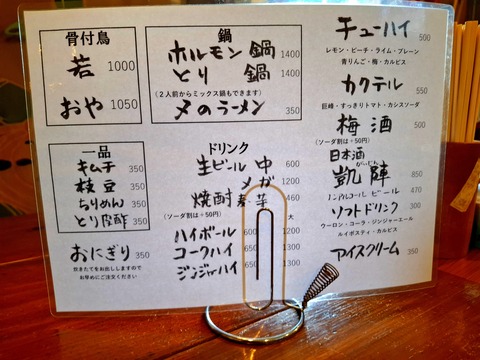 骨付鳥
若 1000
おや 1050
一品
キムチ 350
枝豆 350
ちりめん 350
とり皮酢 350
おにぎり 350
炊きたてをお出ししますので
お早めにご注文ください
鍋
ホルモン鍋 1400
とり鍋 1400
(2人前からミックス鍋もできます)
〆のラーメン 350
ドリンク
生ビール 中 600
メガ 1200
焼酎 麦・芋 460
(ソーダ割は+50円)
大
ハイボール 600 1300
コークハイ 650 1300
ジンジャーハイ 650 1300
チューハイ 500
レモン・ピーチ・ライム・プレーン
青りんご・梅・カルピス
カクテル 550
巨峰・すっきりトマト・カシスソーダ
梅酒 500
(ソーダ割は+50円)
日本酒
がいじん
凱陣 850
ノンアルコールビール 470
ソフトドリンク 300
ウーロン・コーラ・ジンジャーエール
ルイボスティ・カルピス
アイスクリーム 350